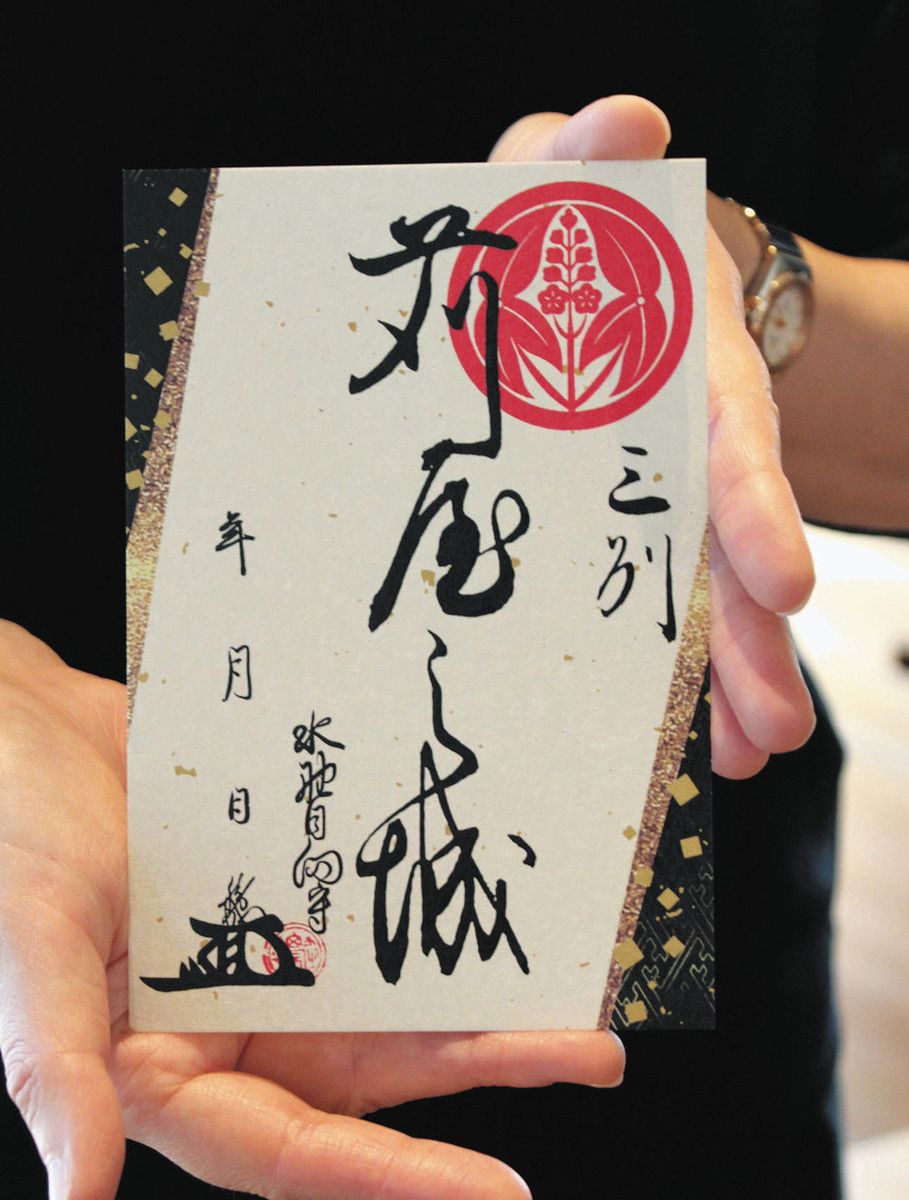 三刕
苅屋之城
水野日向守
年 月 日